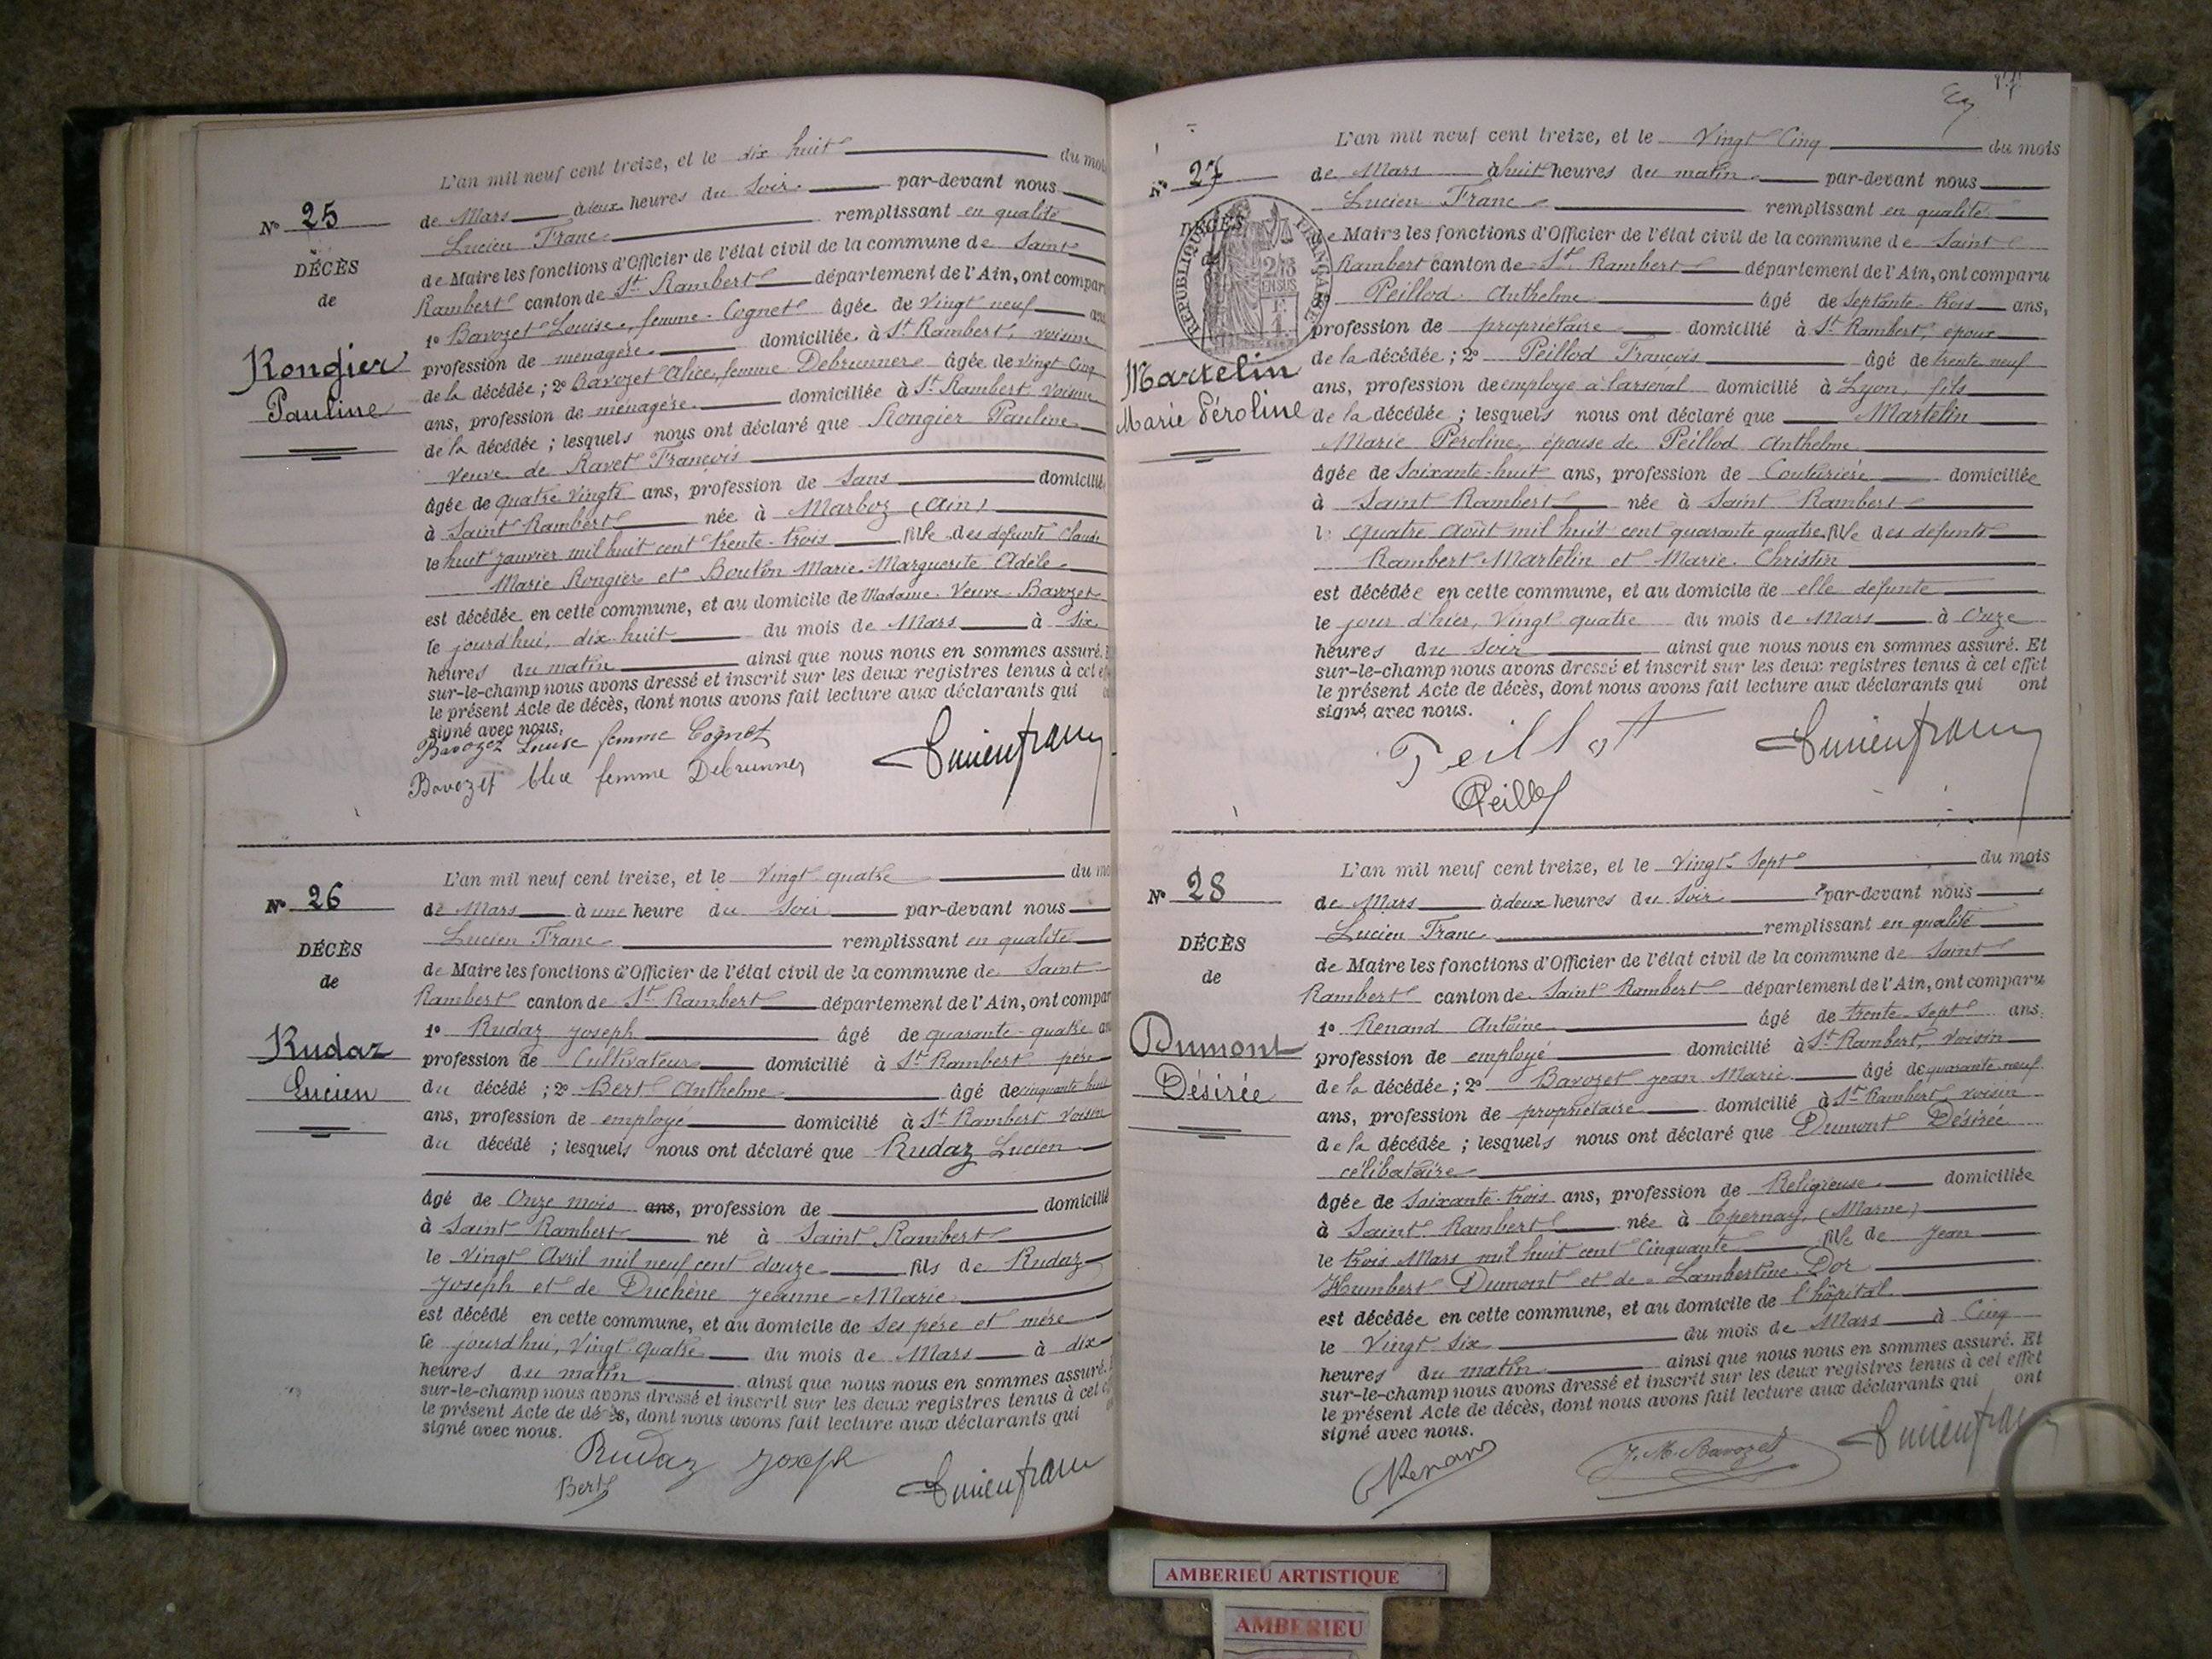 L'an mil neuf cent treize, et le dix huit du mois
Nº 25
de Mars à deux heures du Soir par-devant nous
Lucien Franc remplissant en qualité
DÉCÈS
de
de Maire les fonctions d'Officier de l'état civil de la commune de Saint
Rambert canton de St Rambert département de l'Ain, ont compar
1º Bavozet Louise, femme Cognet âgée de Vingt neuf ans
Rongier
Pauline
profession de ménagère domiciliée à St Rambert, voisine
de la décédée ; 2º Bavozet Alice, femme Debrunner âgée de vingt cinq
ans, profession de ménagère domiciliée à St Rambert voisine
de la décédée ; lesquels nous ont déclaré que Rongier Pauline
Veuve de Ravet François
âgée de quatre vingts ans, profession de Sans domicilié
à Saint Rambert née à Marboz (Ain)
le huit janvier mil huit cent trente-trois fille des défunts Claude
Marie Rongier et Boulon Marie-Marguerite Adèle
est décédée en cette commune, et au domicile de Madame Veuve Bavozet
le jourd'hui, dix-huit du mois de Mars à Six
heures du matin ainsi que nous nous en sommes assuré.
sur-le-champ nous avons dressé et inscrit sur les deux registres tenus à cet
le présent Acte de décès, dont nous avons fait lecture aux déclarants qui
signé avec nous.
Bavozet Louise femme Cognet
Bavozet Alice femme Debrunner
Lucien Franc
L'an mil neuf cent treize, et le Vingt quatre du mo
Nº 26
de Mars à une heure du Soir par-devant nous
Lucien Franc remplissant en qualité
DÉCÈS
de
de Maire les fonctions d'Officier de l'état civil de la commune de Saint
Rambert canton de St Rambert département de l'Ain, ont compar
1º Rudaz Joseph âgé de quarante-quatre an
Rudaz
Lucien
profession de Cultivateur domicilié à St Rambert père
du décédé ; 2º Bert Anthelme âgé de cinquante huit
ans, profession de employé domicilié à St Rambert voisin
du décédé ; lesquels nous ont déclaré que Rudaz Lucien
âgé de Onze mois ans, profession de domicilié
à Saint Rambert né à Saint Rambert
le Vingt Avril mil neuf cent douze fils de Rudaz
Joseph et de Duchène Jeanne-Marie
est décédé en cette commune, et au domicile de Ses père et mère
le jourd'hui, Vingt quatre du mois de Mars à dix
heures du matin ainsi que nous nous en sommes assuré.
sur-le-champ nous avons dressé et inscrit sur les deux registres tenus à cet
le présent Acte de décès, dont nous avons fait lecture aux déclarants qui
signé avec nous.
Rudaz Joseph
Bert
Lucien Franc
L'an mil neuf cent treize, et le Vingt Cinq du mois
Nº 27
de Mars à huit heures du matin par-devant nous
Lucien Franc remplissant en qualité
DÉCÈS
de
RÉPUBLIQUE FRANÇAISE
de Maire les fonctions d'Officier de l'état civil de la commune de Saint
Rambert canton de St Rambert département de l'Ain, ont comparu
Peillod Anthelme âgé de Septante-trois ans,
profession de propriétaire domicilié à St Rambert, époux
Martelin
Marie Péroline
de la décédée ; 2º Peillod François âgé de trente neuf
ans, profession de employé à l'arsenal domicilié à Lyon, fils
de la décédée ; lesquels nous ont déclaré que Martelin
Marie Péroline, épouse de Peillod Anthelme
âgée de Soixante-huit ans, profession de Couturière domiciliée
à Saint Rambert née à Saint Rambert
le quatre Août mil huit cent quarante quatre fille des défunts
Rambert Martelin et Marie Christin
est décédée en cette commune, et au domicile de elle défunte
le jour d'hier, Vingt quatre du mois de Mars à Onze
heures du Soir ainsi que nous nous en sommes assuré. Et
sur-le-champ nous avons dressé et inscrit sur les deux registres tenus à cet effet
le présent Acte de décès, dont nous avons fait lecture aux déclarants qui ont
signé avec nous.
Peillot
Lucien Franc
L'an mil neuf cent treize, et le Vingt Sept du mois
Nº 28
de Mars à deux heures du Soir par-devant nous
Lucien Franc remplissant en qualité
DÉCÈS
de
de Maire les fonctions d'Officier de l'état civil de la commune de Saint
Rambert canton de Saint Rambert département de l'Ain, ont comparu
1º Renand Antoine âgé de trente-sept ans.
Dumont
Désirée
profession de employé domicilié à St Rambert, voisin
de la décédée ; 2º Bavozet Jean Marie âgé de quarante neuf
ans, profession de propriétaire domicilié à St Rambert voisin
de la décédée ; lesquels nous ont déclaré que Dumont Désirée
célibataire
âgée de Soixante-trois ans, profession de Religieuse domiciliée
à Saint Rambert née à Epernay, (Marne)
le trois Mars mil huit cent Cinquante fille de Jean
Humbert Dumont et de Lambertine Dor
est décédée en cette commune, et au domicile de l'hôpital
le Vingt Six du mois de Mars à Cinq
heures du matin ainsi que nous nous en sommes assuré. Et
sur-le-champ nous avons dressé et inscrit sur les deux registres tenus à cet effet
le présent Acte de décès, dont nous avons fait lecture aux déclarants qui ont
signé avec nous.
Renand
J. M. Bavozet
Lucien Franc
AMBERIEU ARTISTIQUE
AMBERIEU